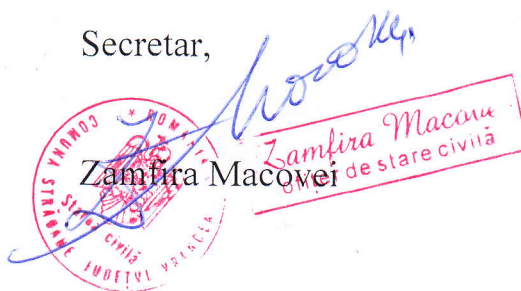 Secretar,
Zamfira Macovei
Zamfira Macovei
Ofițer de stare civilă
* ROMÂNIA *
COMUNA STRĂOANE
JUDEȚUL VRANCEA
Starea civilă